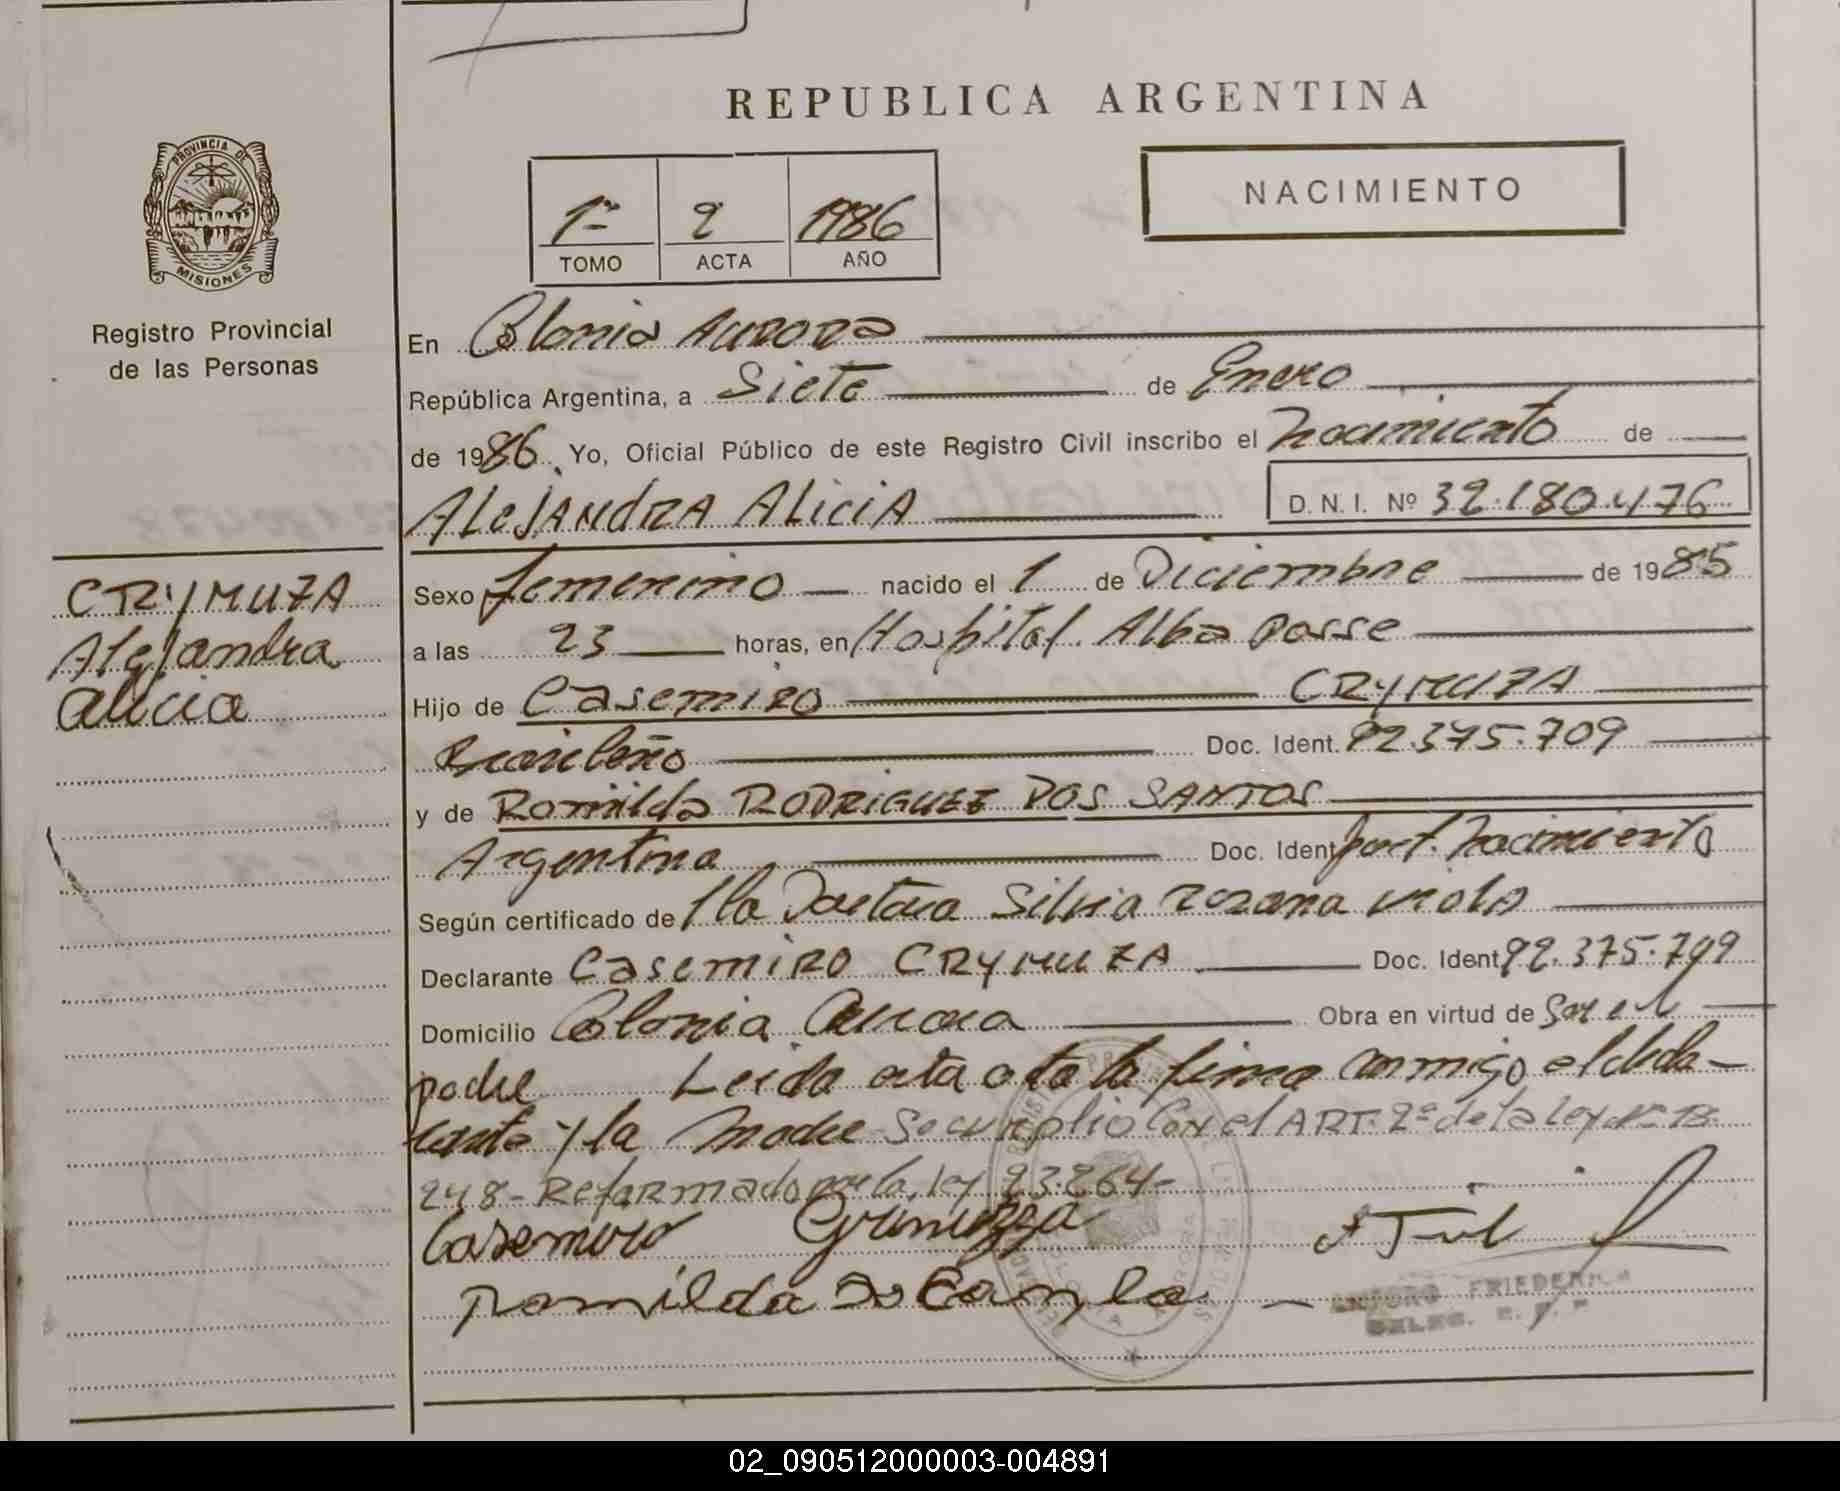 REPUBLICA ARGENTINA
NACIMIENTO
PROVINCIA DE
MISIONES
Registro Provincial
de las Personas
1º 2 1986
TOMO ACTA AÑO
En Colonia Aurora
República Argentina, a Siete de Enero
de 1986. Yo, Oficial Público de este Registro Civil inscribo el nacimiento de
ALEJANDRA ALICIA D.N.I. Nº 32.180.476
CRYMUZA
Alejandra
Alicia
Sexo femenino nacido el 1 de Diciembre de 1985
a las 23 horas, en Hospital Alba Posse
Hijo de Casemiro CRYMUZA
Brasileño Doc. Ident. 92.375.709
y de Romilda RODRIGUEZ DOS SANTOS
Argentina Doc. Ident. part. nacimiento
Según certificado de la Doctora Silvia Rozana Viola
Declarante Casemiro CRYMUZA Doc. Ident. 92.375.709
Domicilio Colonia Aurora Obra en virtud de Ser el
padre Leida esta acta la firma conmigo el decla-
rante y la madre Se cumplio Con el ART. 2º de la Ley Nº 18.
248- Reformado por la Ley 23.264-
Casemiro Crimuzza
Romilda Dos
ARTURO FRIEDERICH
DELEG.
02_090512000003-004891